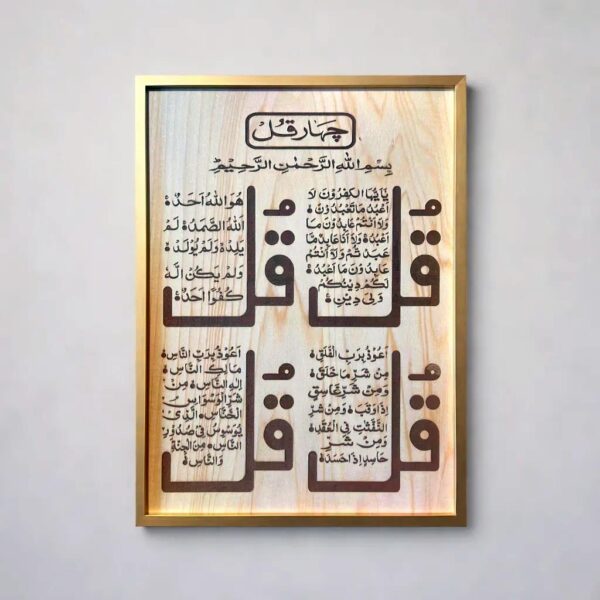 چہار قل
بِسْمِ اللهِ الرَّحْمٰنِ الرَّحِيْمِ
قُل
يٰۤاَيُّهَا الْكٰفِرُوْنَ لَا
اَعْبُدُ مَا تَعْبُدُوْنَ
وَلَا اَنْتُمْ عٰبِدُوْنَ مَا
اَعْبُدُ وَلَا اَنَا عَابِدٌ مَّا
عَبَدْتُّمْ وَلَا اَنْتُمْ
عٰبِدُوْنَ مَا اَعْبُدُ
لَكُمْ دِيْنُكُمْ
وَلِيَ دِيْنِ
قُل
هُوَ اللهُ اَحَدٌ
اَللهُ الصَّمَدُ لَمْ
يَلِدْ وَلَمْ يُوْلَدْ
وَلَمْ يَكُنْ لَّهٗ
كُفُوًا اَحَدٌ
قُل
اَعُوْذُ بِرَبِّ الْفَلَقِ
مِنْ شَرِّ مَا خَلَقَ
وَمِنْ شَرِّ غَاسِقٍ
اِذَا وَقَبَ وَمِنْ شَرِّ
النَّفّٰثٰتِ فِي الْعُقَدِ
وَمِنْ شَرِّ
حَاسِدٍ اِذَا حَسَدَ
قُل
اَعُوْذُ بِرَبِّ النَّاسِ
مَلِكِ النَّاسِ
اِلٰهِ النَّاسِ مِنْ
شَرِّ الْوَسْوَاسِ
الْخَنَّاسِ الَّذِيْ
يُوَسْوِسُ فِيْ صُدُوْرِ
النَّاسِ مِنَ الْجِنَّةِ
وَالنَّاسِ